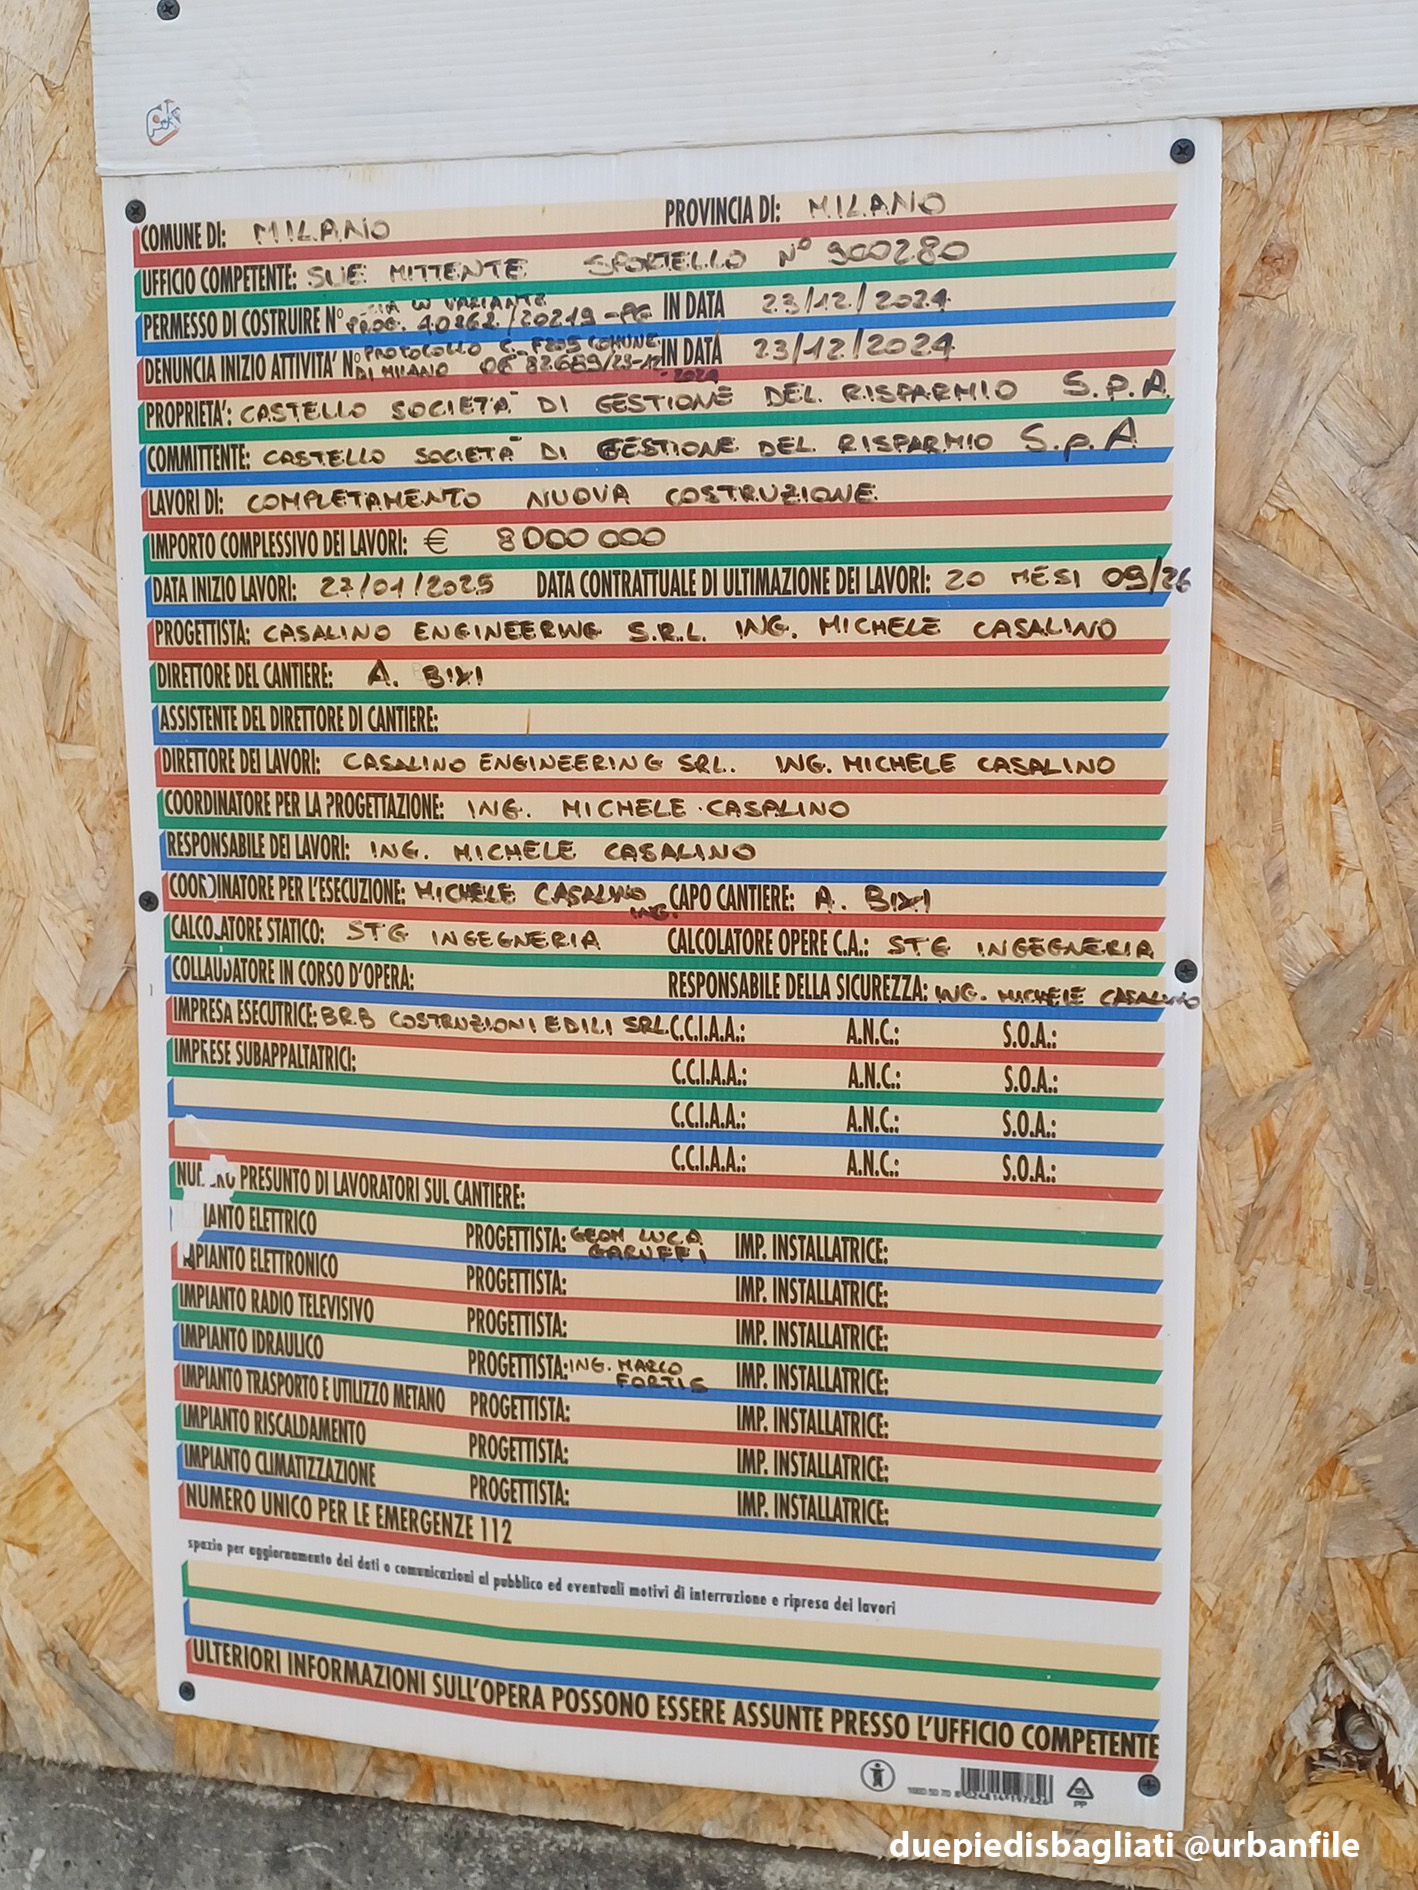 COMUNE DI: MILANO PROVINCIA DI: MILANO
UFFICIO COMPETENTE: SUE MITTENTE SPORTELLO N° 900280
PERMESSO DI COSTRUIRE N° IN VARIANTE PROG. /20219-PG IN DATA 23/12/2024
DENUNCIA INIZIO ATTIVITA' N° PROTOCOLLO C_F205 COMUNE DI MILANO 2024 IN DATA 23/12/2024
PROPRIETA': CASTELLO SOCIETA' DI GESTIONE DEL RISPARMIO S.P.A.
COMMITTENTE: CASTELLO SOCIETA' DI GESTIONE DEL RISPARMIO S.p.A
LAVORI DI: COMPLETAMENTO NUOVA COSTRUZIONE
IMPORTO COMPLESSIVO DEI LAVORI: € 8000000
DATA INIZIO LAVORI: 27/01/2025 DATA CONTRATTUALE DI ULTIMAZIONE DEI LAVORI: 20 MESI 09/26
PROGETTISTA: CASALINO ENGINEERING S.R.L. ING. MICHELE CASALINO
DIRETTORE DEL CANTIERE: A. BIXI
ASSISTENTE DEL DIRETTORE DI CANTIERE:
DIRETTORE DEI LAVORI: CASALINO ENGINEERING SRL. ING. MICHELE CASALINO
COORDINATORE PER LA PROGETTAZIONE: ING. MICHELE CASALINO
RESPONSABILE DEI LAVORI: ING. MICHELE CASALINO
COORDINATORE PER L'ESECUZIONE: MICHELE CASALINO ING. CAPO CANTIERE: A. BIXI
CALCOLATORE STATICO: STG INGEGNERIA CALCOLATORE OPERE C.A.: STG INGEGNERIA
COLLAUDATORE IN CORSO D'OPERA: RESPONSABILE DELLA SICUREZZA: ING. MICHELE CASALINO
IMPRESA ESECUTRICE: BRB COSTRUZIONI EDILI SRL. C.C.I.A.A.: A.N.C.: S.O.A.:
IMPRESE SUBAPPALTATRICI: C.C.I.A.A.: A.N.C.: S.O.A.:
C.C.I.A.A.: A.N.C.: S.O.A.:
C.C.I.A.A.: A.N.C.: S.O.A.:
NUMERO PRESUNTO DI LAVORATORI SUL CANTIERE:
IANTO ELETTRICO PROGETTISTA: GEOM LUCA GARUFFI IMP. INSTALLATRICE:
MPIANTO ELETTRONICO PROGETTISTA: IMP. INSTALLATRICE:
IMPIANTO RADIO TELEVISIVO PROGETTISTA: IMP. INSTALLATRICE:
IMPIANTO IDRAULICO PROGETTISTA: ING. MARCO FORTIS IMP. INSTALLATRICE:
IMPIANTO TRASPORTO E UTILIZZO METANO PROGETTISTA: IMP. INSTALLATRICE:
IMPIANTO RISCALDAMENTO PROGETTISTA: IMP. INSTALLATRICE:
IMPIANTO CLIMATIZZAZIONE PROGETTISTA: IMP. INSTALLATRICE:
NUMERO UNICO PER LE EMERGENZE 112
spazio per aggiornamento dei dati o comunicazioni al pubblico ed eventuali motivi di interruzione e ripresa dei lavori
ULTERIORI INFORMAZIONI SULL'OPERA POSSONO ESSERE ASSUNTE PRESSO L'UFFICIO COMPETENTE
PP
duepiedisbagliati @urbanfile